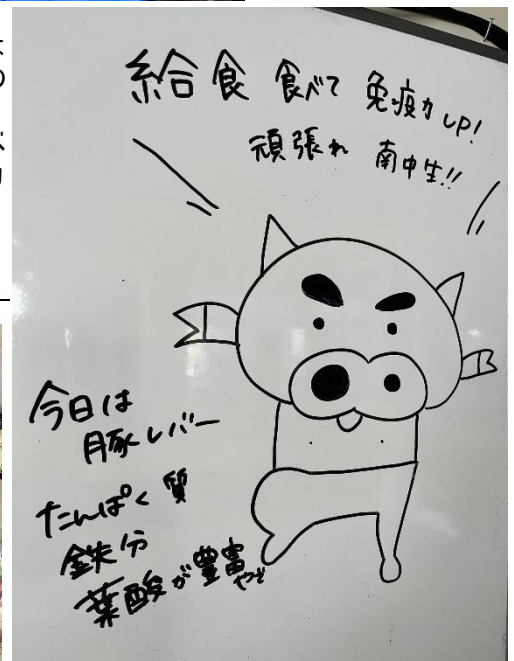 給食 食べて 免疫力UP!
頑張れ 南中生!!
今日は
豚レバー
たんぱく質
鉄分
葉酸が豊富
やぞ